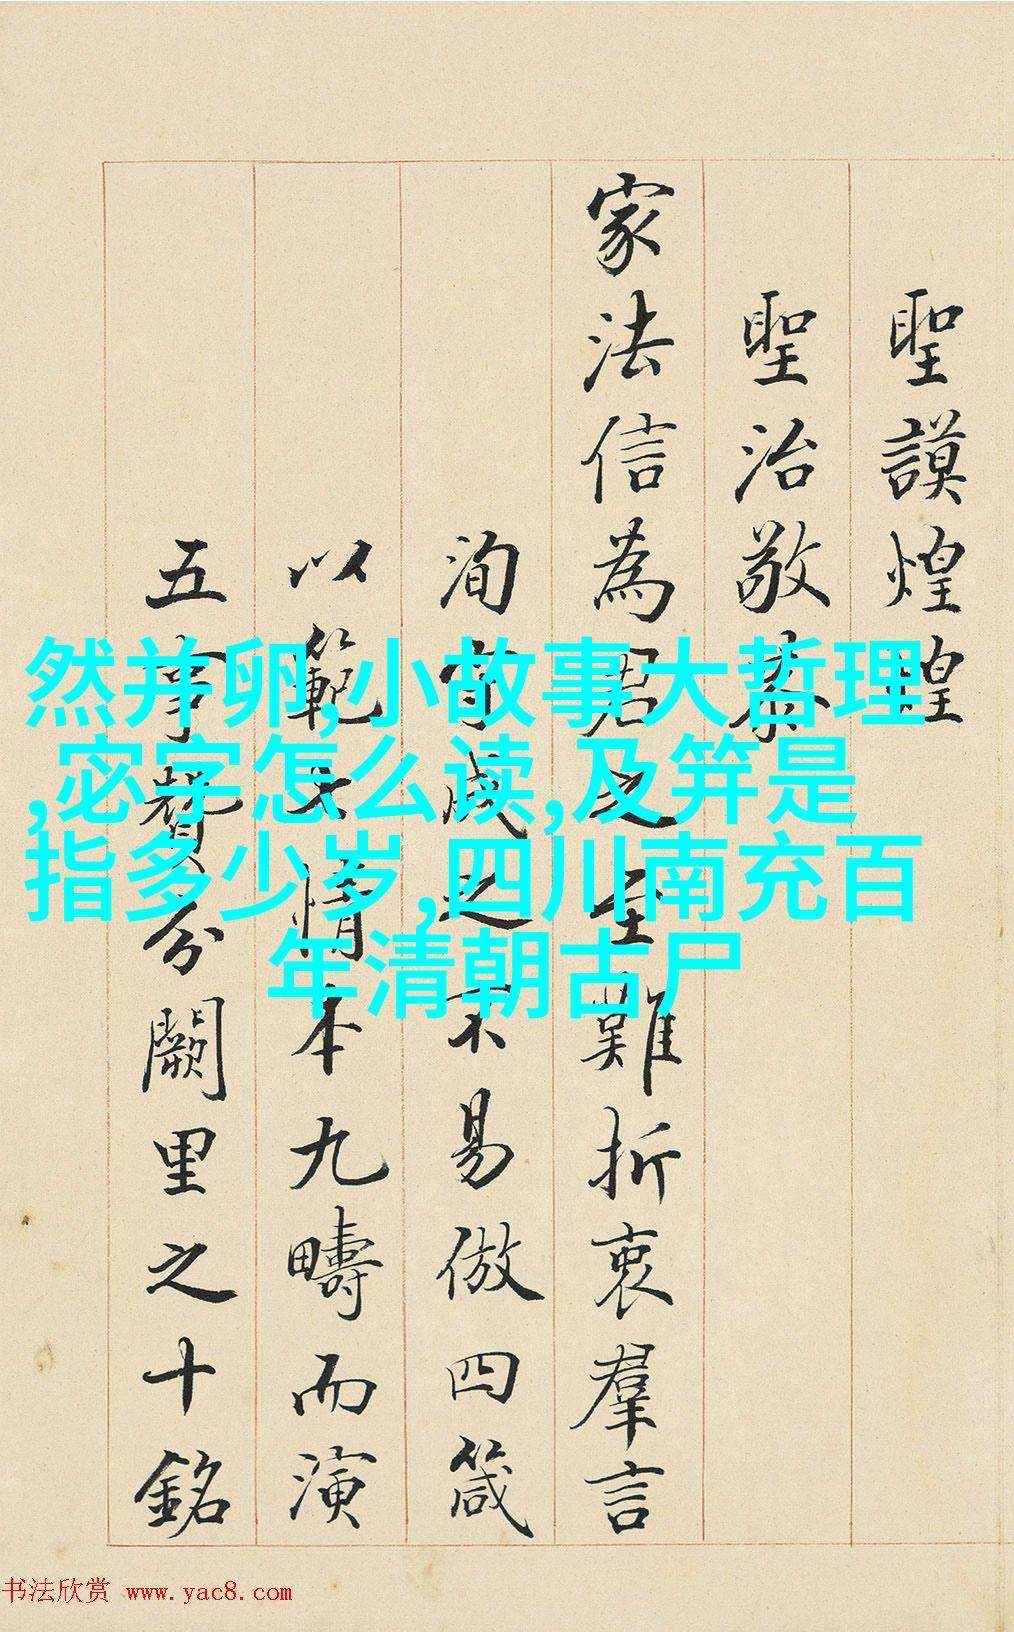 聖謨煌煌
聖治敬恭
家法信為君之至難折衷羣言
洵成之不易倣四箴
以範七情本九疇而演
五事贊分闕里之十銘
然并卵,小故事大哲理
,宓字怎么读,及笄是
指多少岁,四川南充百
年清朝古尸
书法欣赏 www.yac8.com